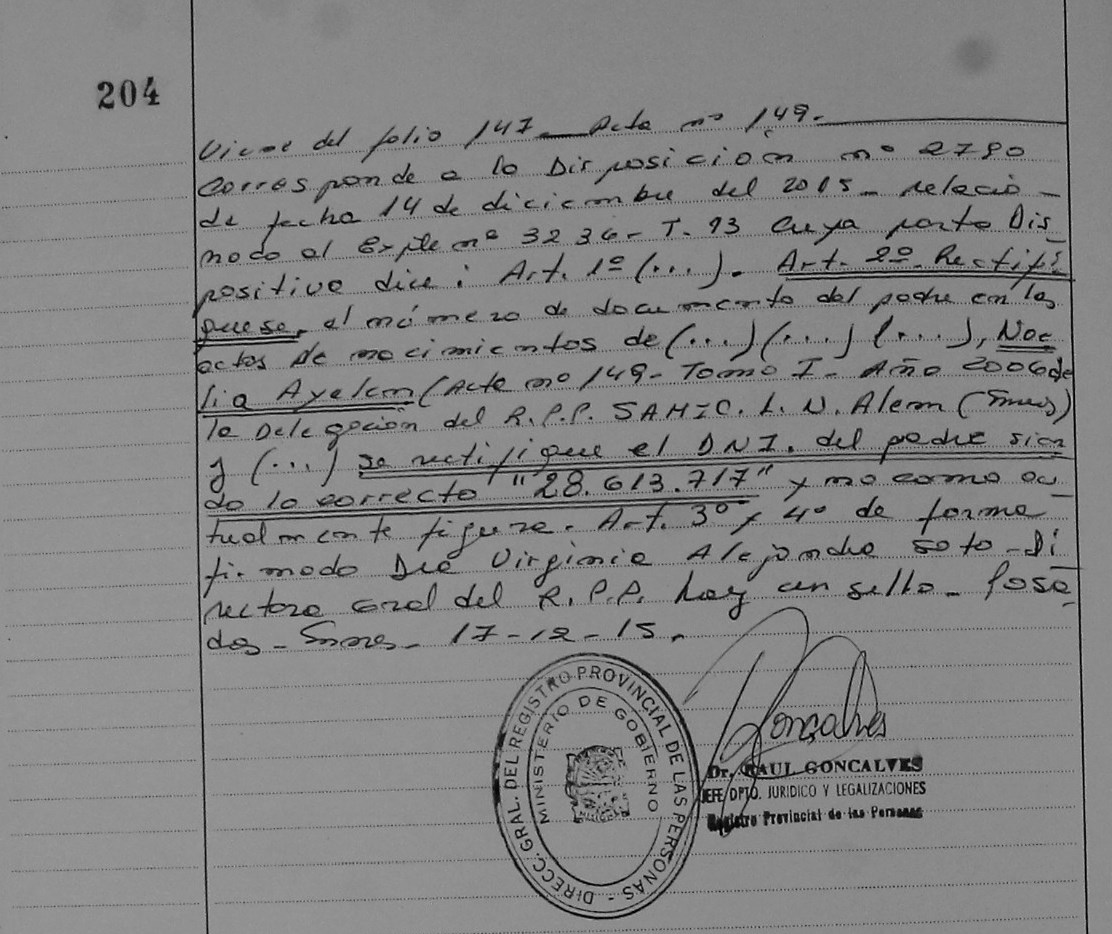 204
Viene del folio 147 - Acta nº 149.-
Corresponde a la Disposición nº 2790
de fecha 14 de diciembre del 2015 - relacio-
nado al Expte nº 3236 - T. 93 cuya parte Dis-
positiva dice: Art. 1º (...). Art. 2º Rectifí
quese, el número de documento del padre en las
actas de nacimientos de (...) (...) (...), Noe
lia Ayelen (Acta nº 149 - Tomo I - Año 2006 de
la Delegación del R.P.P. L. N. Alem (Mnes)
y (...) se rectifique el DNI. del padre sien
do lo correcto "28.613.717" y no como ac
tualmente figura. Art. 3º y 4º de forma
firmado Dra Virginia Alejandra Soto - Di
rectora Gral del R.P.P. hay un sello - Posa
das - Mnes - 17-12-15.
DIRECC. GRAL. DEL REGISTRO PROVINCIAL DE LAS PERSONAS -
MINISTERIO DE GOBIERNO
Goncalves
Dr. RAUL GONCALVES
JEFE DPTO. JURIDICO Y LEGALIZACIONES
Registro Provincial de las Personas